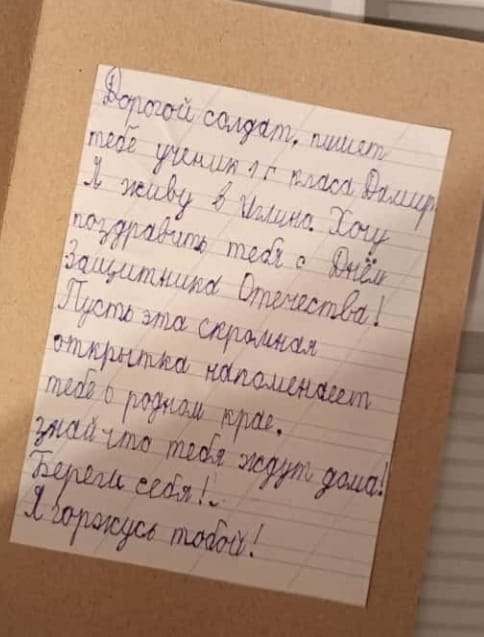 Дорогой солдат, пишет
тебе ученик 1г класа Дамир.
Я живу в Иглино. Хочу
поздравить тебя с Днём
Защитника Отечества!
Пусть эта скромная
открытка напоменает
тебе о родном крае.
знай что тебя ждут дома!
Береги себя!
Я горжусь тобой!